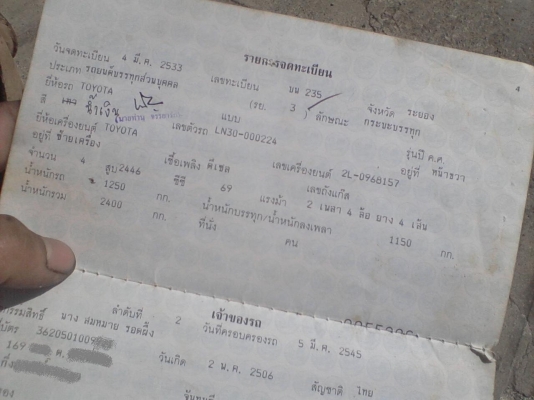 4
รายการจดทะเบียน
วันจดทะเบียน 4 มี.ค. 2533 เลขทะเบียน นน 235 จังหวัด ระยอง
ประเภท รถยนต์บรรทุกส่วนบุคคล (รย. 3 ) ลักษณะ กระบะบรรทุก
ยี่ห้อรถ TOYOTA แบบ รุ่นปี ค.ศ
สี เทา น้ำเงิน เลขตัวรถ LN30-000224 อยู่ที่ หน้าขวา
ยี่ห้อเครื่องยนต์ TOYOTA เลขเครื่องยนต์ 2L-0968157
อยู่ที่ ซ้ายเครื่อง เชื้อเพลิง ดีเซล เลขถังแก๊ส
จำนวน 4 สูบ 2446 ซีซี 69 แรงม้า 2 เพลา 4 ล้อ ยาง 4 เส้น
น้ำหนักรถ 1250 กก. น้ำหนักบรรทุก/น้ำหนักลงเพลา 1150 กก.
น้ำหนักรวม 2400 กก. ที่นั่ง คน
เจ้าของรถ
ลำดับที่ 2 วันที่ครอบครองรถ 5 มี.ค. 2545
กรรมสิทธิ์ นาง สมหมาย รอดผึ้ง
บัตร 3620501009 วันเกิด 2 พ.ค. 2506 สัญชาติ ไทย
169 ต.